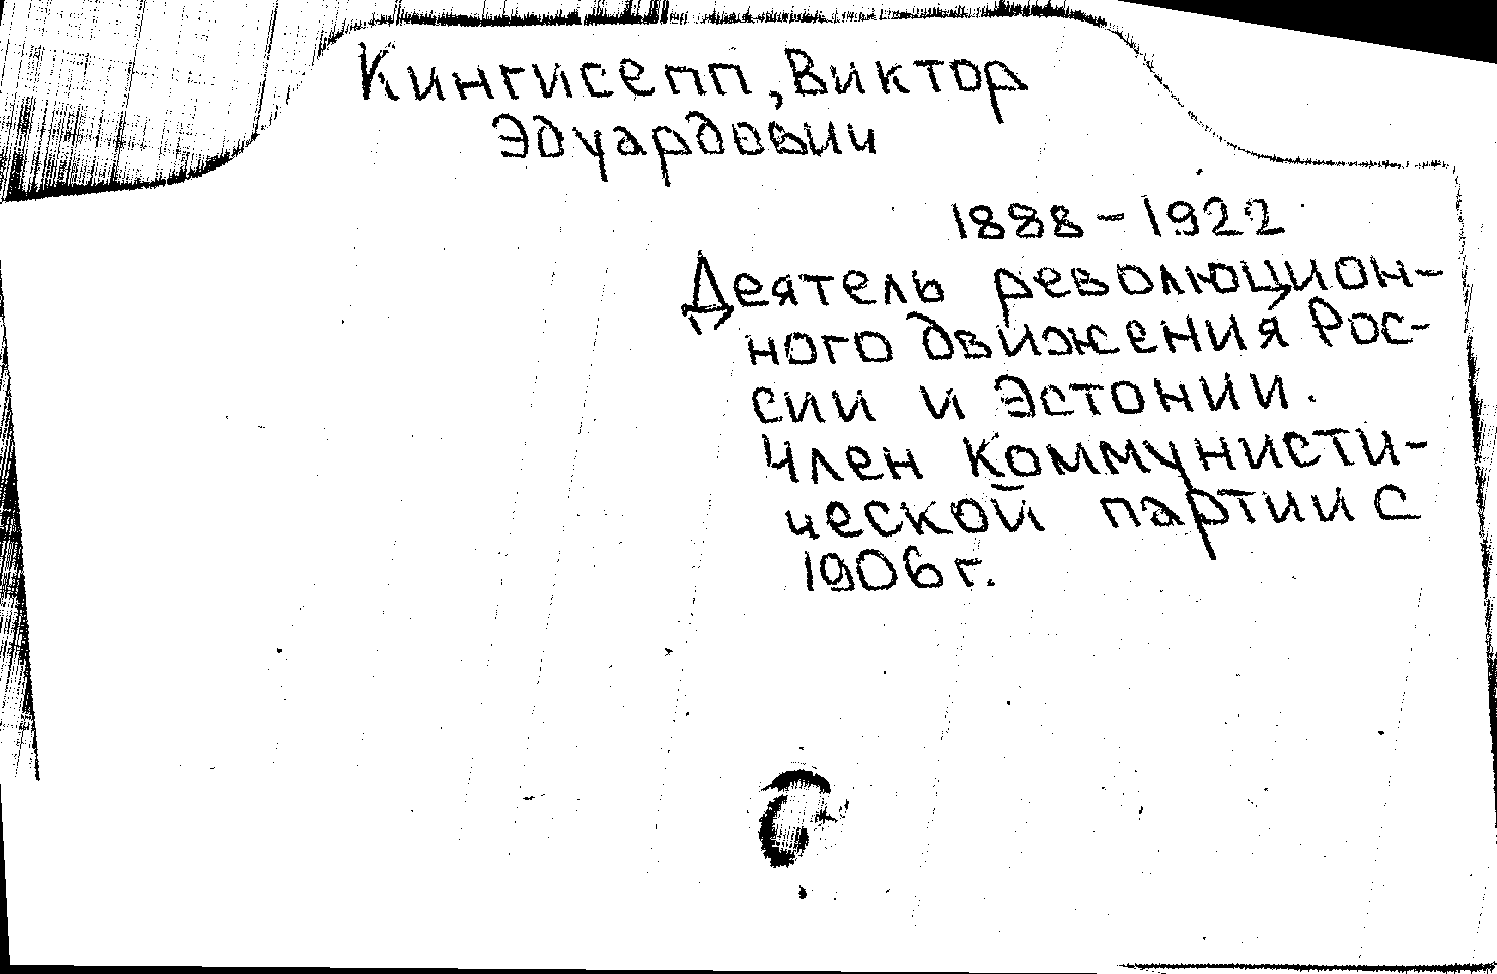 Кингисепп, Виктор
Эдуардович
1888 - 1922
Деятель революцион-
ного движения Рос-
сии и Эстонии.
Член Коммунисти-
ческой партии с
1906 г.